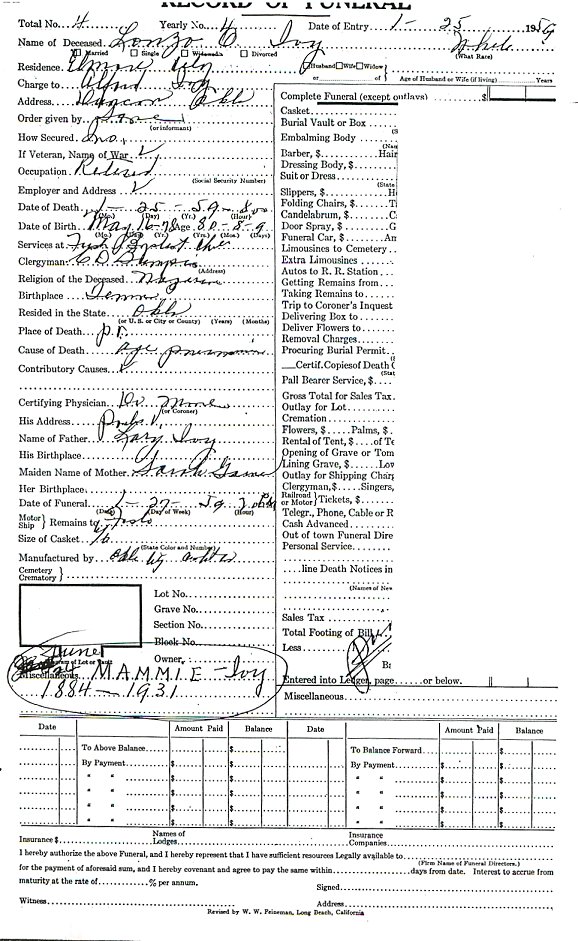 RECORD OF FUNERAL
Total No. 4 Yearly No. 4 Date of Entry 1-25 1959
Name of Deceased Lonzo O Ivy White
Married Single Widowed Divorced (What Race)
Residence Elmore City Husband Wife Widow
or of Age of Husband or Wife (if living) Years
Charge to Alfred Ivy
Address Okla
Order given by
(or informant)
How Secured
If Veteran, Name of War
Occupation Retired
(Social Security Number)
Employer and Address
Date of Death 1-25-59-8:00
(Mo.) (Day) (Yr.) (Hour)
Date of Birth May 16-78 Age 80-8-9
(Mo.) (Day) (Yr.) (Yrs.) (Mos.) (Days)
Services at
Clergyman
(Address)
Religion of the Deceased
Birthplace Tenn
Resided in the State Okla
(or U. S. or City or County) (Years) (Months)
Place of Death
Cause of Death age pneumonia
Contributory Causes
Certifying Physician Dr.
(or Coroner)
His Address
Name of Father Ivy
His Birthplace
Maiden Name of Mother Sarah
Her Birthplace
Date of Funeral 1-27-59
(Date) (Day of Week) (Hour)
Motor Ship } Remains to
Size of Casket
(State Color and Number)
Manufactured by Okla
Cemetery Crematory }
Lot No.
Grave No.
Section No.
Block No.
Owner
June
Diagram of Lot or Vault
Miscellaneous MAMMIE Ivy
1884-1931
Complete Funeral (except outlays) $
Casket
Burial Vault or Box
(S
Embalming Body
(Nam
Barber, $ Hair
Dressing Body, $
Suit or Dress
(State
Slippers, $ H
Folding Chairs, $ T
Candelabrum, $ C
Door Spray, $ G
Funeral Car, $ An
Limousines to Cemetery
Extra Limousines
Autos to R. R. Station
Getting Remains from
Taking Remains to
Trip to Coroner's Inquest
Delivering Box to
Deliver Flowers to
Removal Charges
Procuring Burial Permit
Certif. Copies of Death C
(Stat
Pall Bearer Service, $
Gross Total for Sales Tax
Outlay for Lot
Cremation
Flowers, $ Palms, $
Rental of Tent, $ of Te
Opening of Grave or Tom
Lining Grave, $ Lov
Outlay for Shipping Charg
Clergyman, $ Singers,
Railroad or Motor } Tickets, $
Telegr., Phone, Cable or R
Cash Advanced
Out of town Funeral Dire
Personal Service
line Death Notices in
(Names of New
Sales Tax
Total Footing of Bill
Less
Entered into Ledger, page or below.
Miscellaneous
Date Amount Paid Balance Date Amount Paid Balance
To Above Balance $ To Balance Forward $
By Payment $ $ By Payment $ $
" " $ $ " " $ $
" " $ $ " " $ $
" " $ $ " " $ $
" " $ $ " " $ $
Insurance $ Names of Lodges Insurance Companies
I hereby authorize the above Funeral, and I hereby represent that I have sufficient resources Legally available to
(Firm Name of Funeral Directors.)
for the payment of aforesaid sum, and I hereby covenant and agree to pay the same within days from date. Interest to accrue from
maturity at the rate of % per annum. Signed
Witness Address
Revised by W. W. Feineman, Long Beach, California